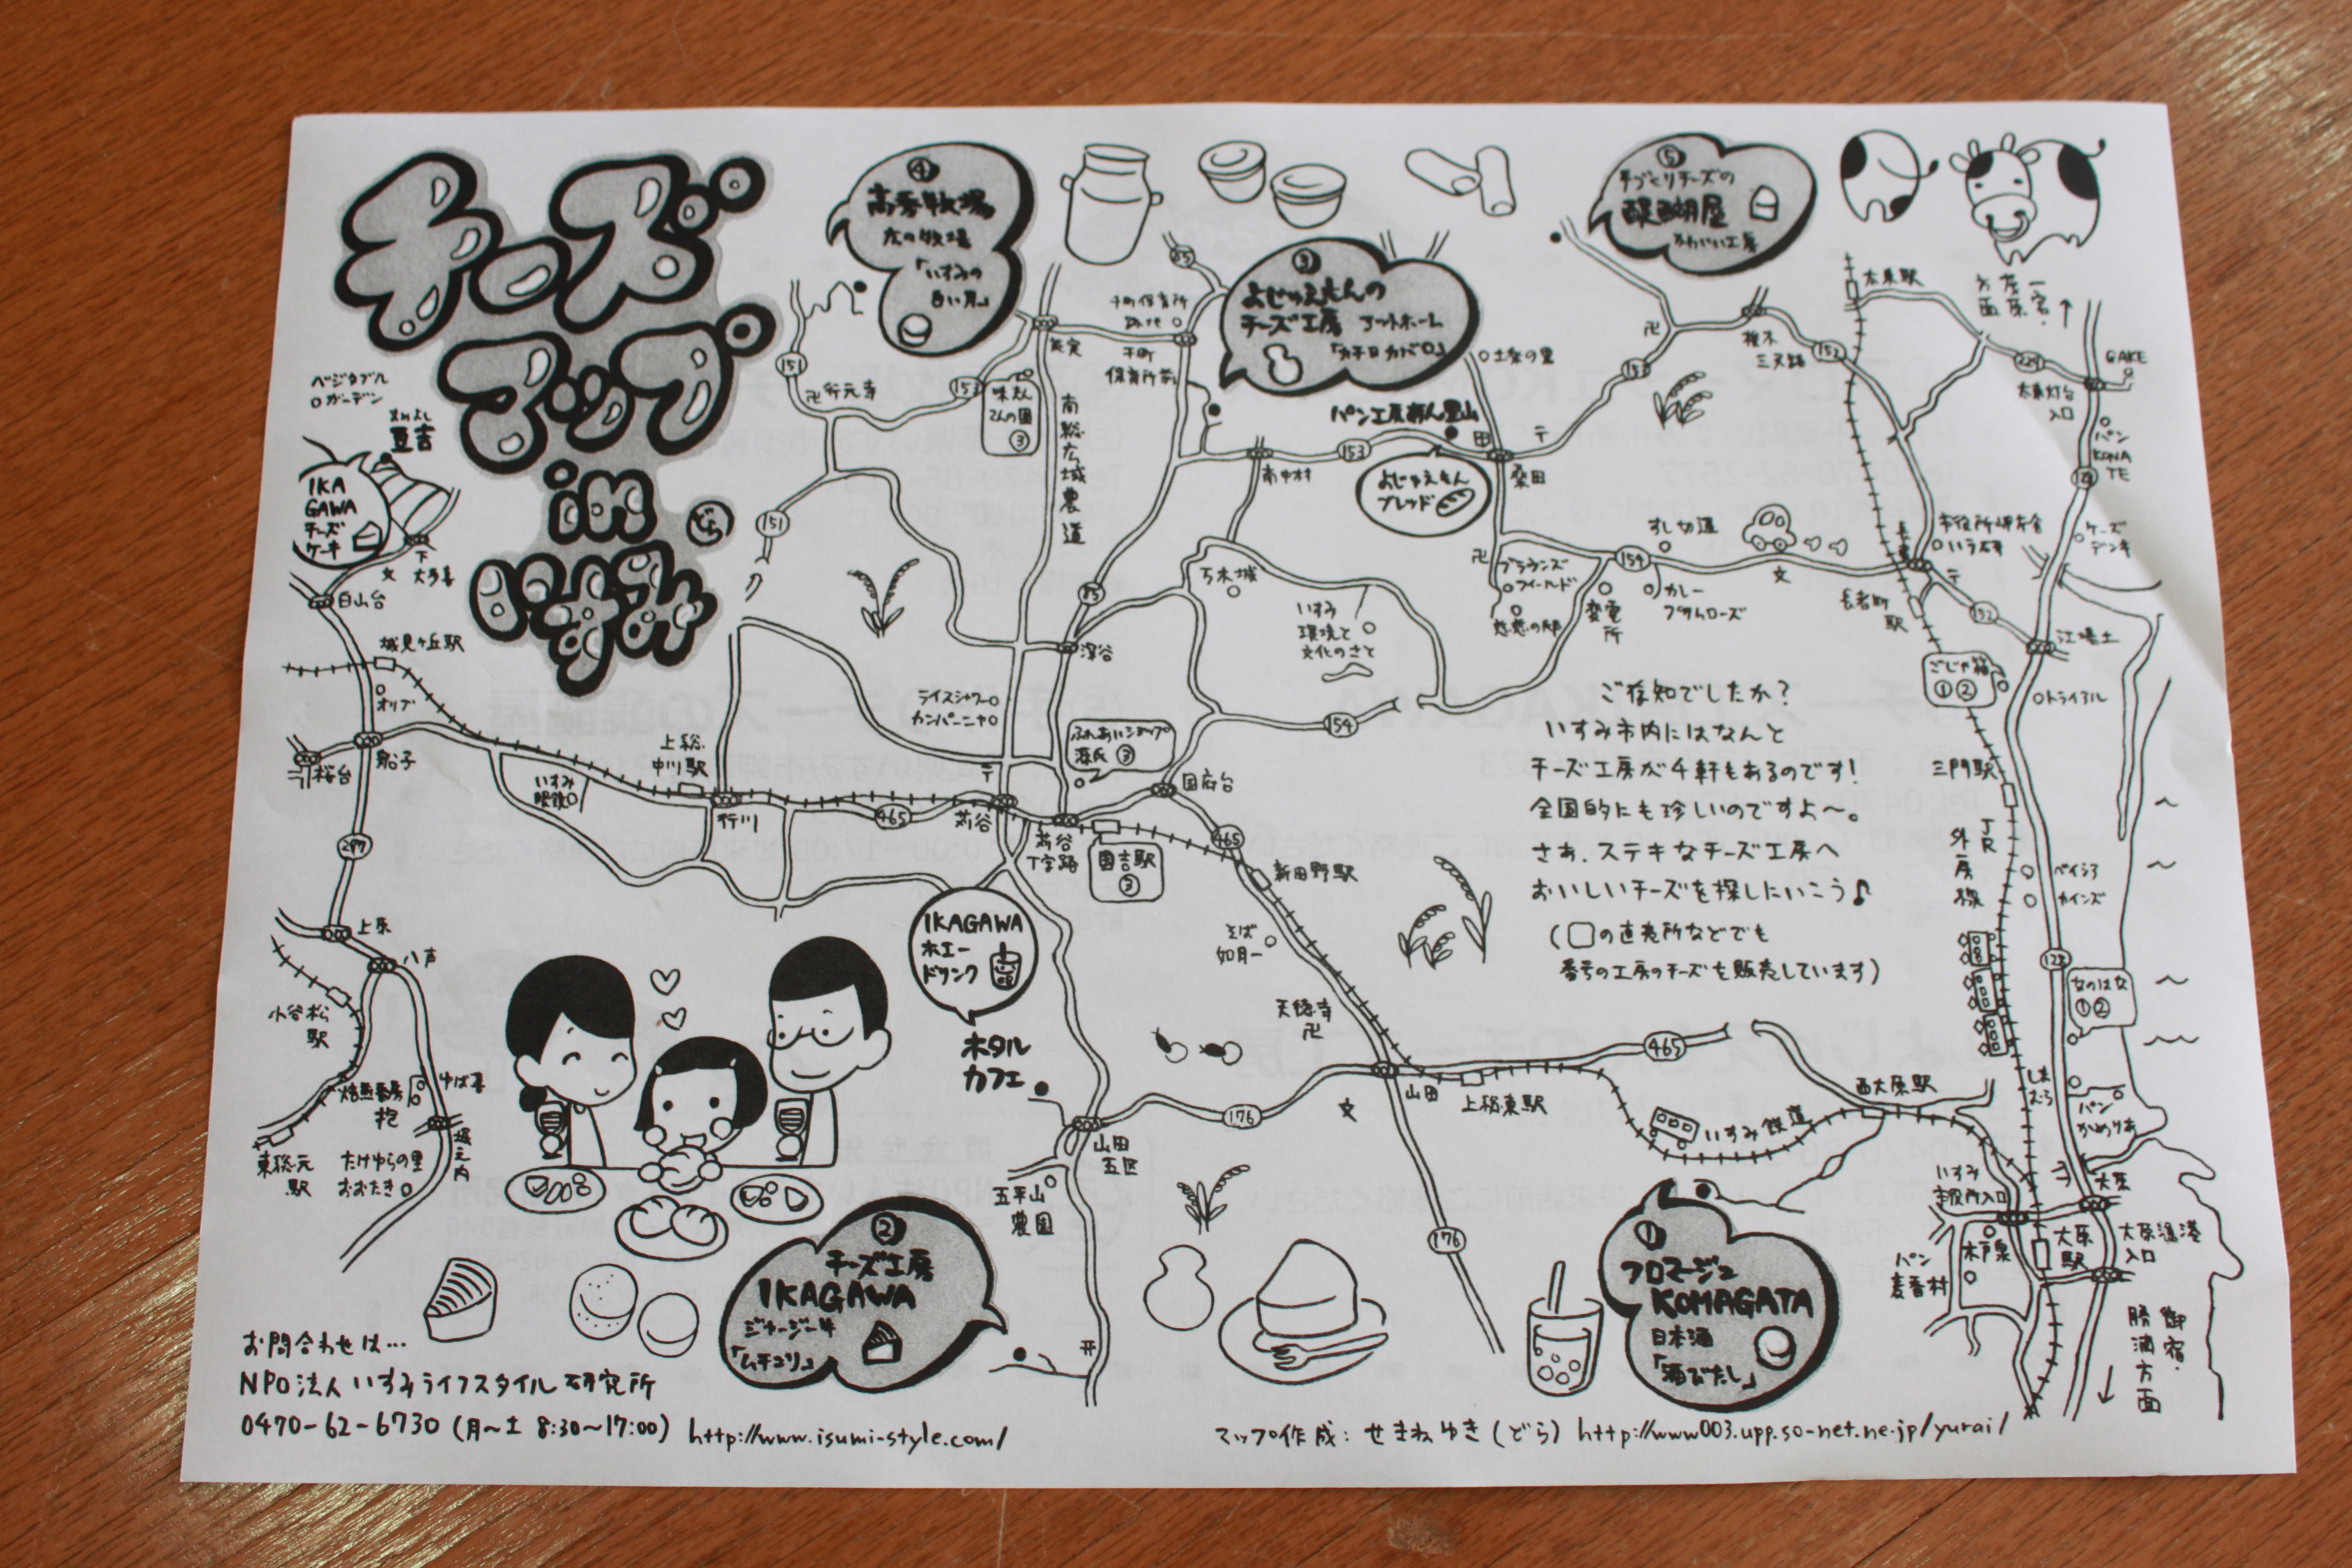 チーズ
マップ
in
いすみ
どら
④
高秀牧場
「いすみの
白い月」
③
よじゅえもんの
チーズ工房
アットホーム
「カチョカバロ」
⑤
手づくりチーズの
醍醐屋
かわいい工房
ベジタブル
ガーデン
豆吉
IKA
GAWA
チーズ
ケーキ
下
大多喜
文
白山台
城見ヶ丘駅
オリブ
船子
桜台
297
上原
八声
小谷松
駅
ゆば喜
抱
堀之内
東総元
駅
たけゆらの里
おおたき
151
卍行元寺
153
味えん
③
能実
南総広域農道
85
千町保育所
千町
保育所前
土楽の里
パン工房
よじゅえもん
ブレッド
卍
椎木
三又路
152
太東駅
一宮・
229
太東灯台
入口
GAKE
パン
KONA
TE
128
ケーズ
デンキ
151
南中村
153
桑田
〒
153
すし切道
万木城
卍
ブラウンズ
フィールド
慈慈の邸
変電
所
154
カレー
文
いすみ
環境と
文化のさと
85
深谷
長者町
駅
152
江場土
ごじゃ箱
①②
トライアル
ライスシャワー
カンパーニャ
ふれあいショップ
源氏 ③
国府台
154
上総
中川駅
いすみ
眼鏡
行川
465
苅谷
苅谷
丁字路
国吉駅
③
465
新田野駅
三門駅
JR
外房線
ベイシア
カインズ
128
なのはな
①②
ご存知でしたか?
いすみ市内にはなんと
チーズ工房が4軒もあるのです!
全国的にも珍しいのですよ〜。
さあ、ステキなチーズ工房へ
おいしいチーズを探しにいこう♪
(□の直売所などでも
番号の工房のチーズも販売しています)
IKAGAWA
ホエー
ドリンク
ホタル
カフェ
そば
如月
天徳寺
卍
465
176
文
山田
上総東駅
西大原駅
いすみ鉄道
山田
五区
五平山
農園
176
しまむら
パン
かめりあ
大原
いすみ
市役所入口
木戸泉
大原
駅
大原漁港
入口
パン
麦香村
御宿・
勝浦方面
②
チーズ工房
IKAGAWA
ジャージー牛
「ムチュリ」
①
フロマージュ
KOMAGATA
日本酒
「酒びたし」
お問合わせは…
NPO法人 いすみライフスタイル研究所
0470-62-6730 (月〜土 8:30〜17:00) http://www.isumi-style.com/
マップ作成: せきねゆき(どら) http://www003.upp.so-net.ne.jp/yurai/